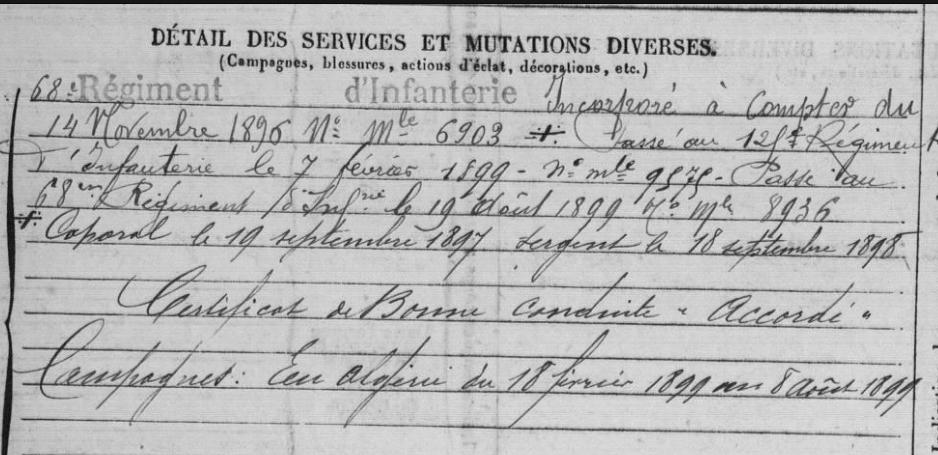 DÉTAIL DES SERVICES ET MUTATIONS DIVERSES.
(Campagnes, blessures, actions d'éclat, décorations, etc.)
68e Régiment d'Infanterie Incorporé à compter du
14 Novembre 1896 No Mle 6903 Passé au 125e Régiment
d'Infanterie le 7 février 1899 - No mle 9575 - Passé au
68em Régiment d'Infrie le 19 Août 1899 No Mle 8936
Caporal le 19 septembre 1897 sergent le 18 septembre 1898
Certificat de Bonne conduite " Accordé "
Campagnes: En Algérie du 18 février 1899 au 8 août 1899